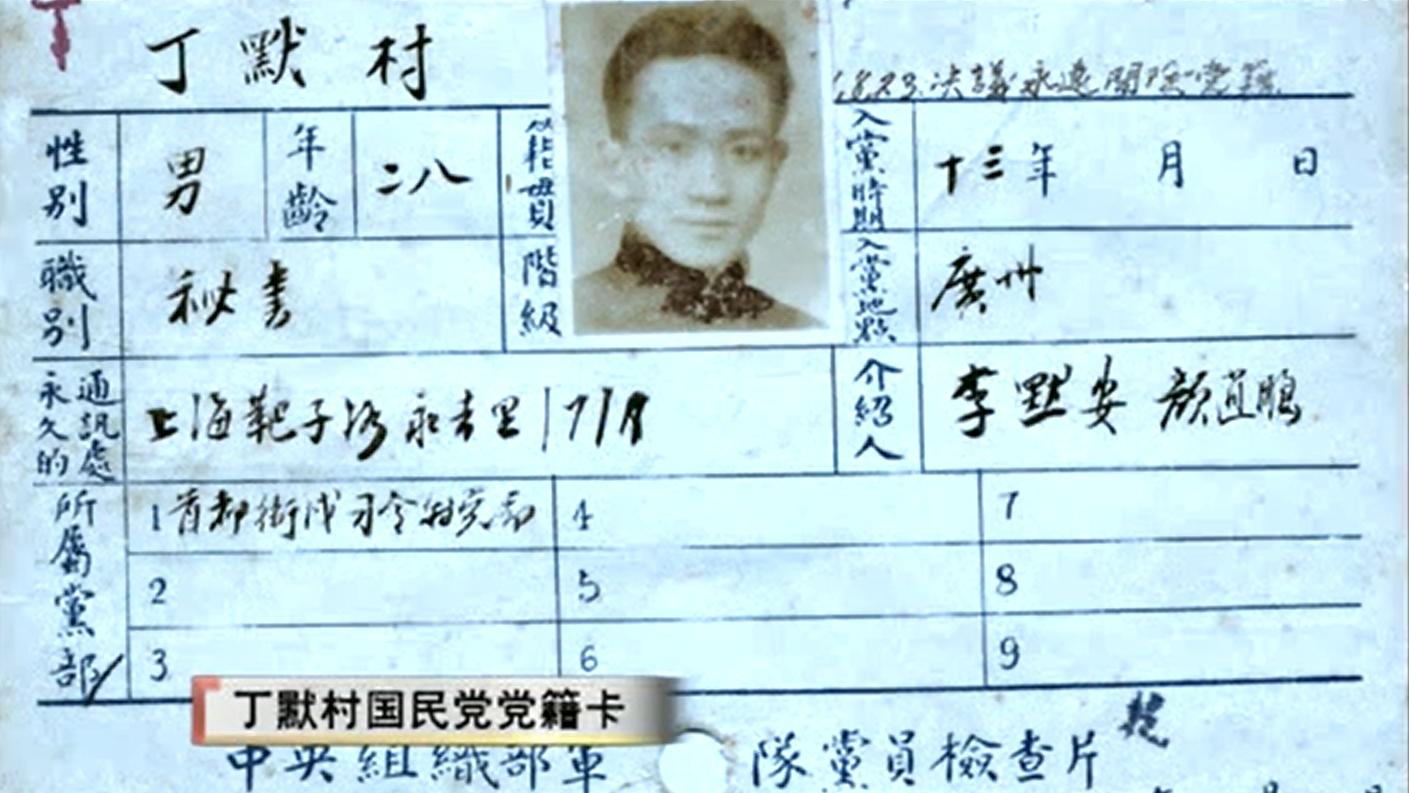 丁默村
决議永遠開除党籍
性別 男 年齡 二八 階級 入黨時期 十三年 月 日
職別 秘書 入黨地點 廣州
永久的通訊處 上海靶子路永吉里 介紹人 李默安 顏道鵬
所屬黨部
1 首都衛戍司令特党部 4 7
2 5 8
3 6 9
丁默村国民党党籍卡
中央組織部軍隊黨員檢查片